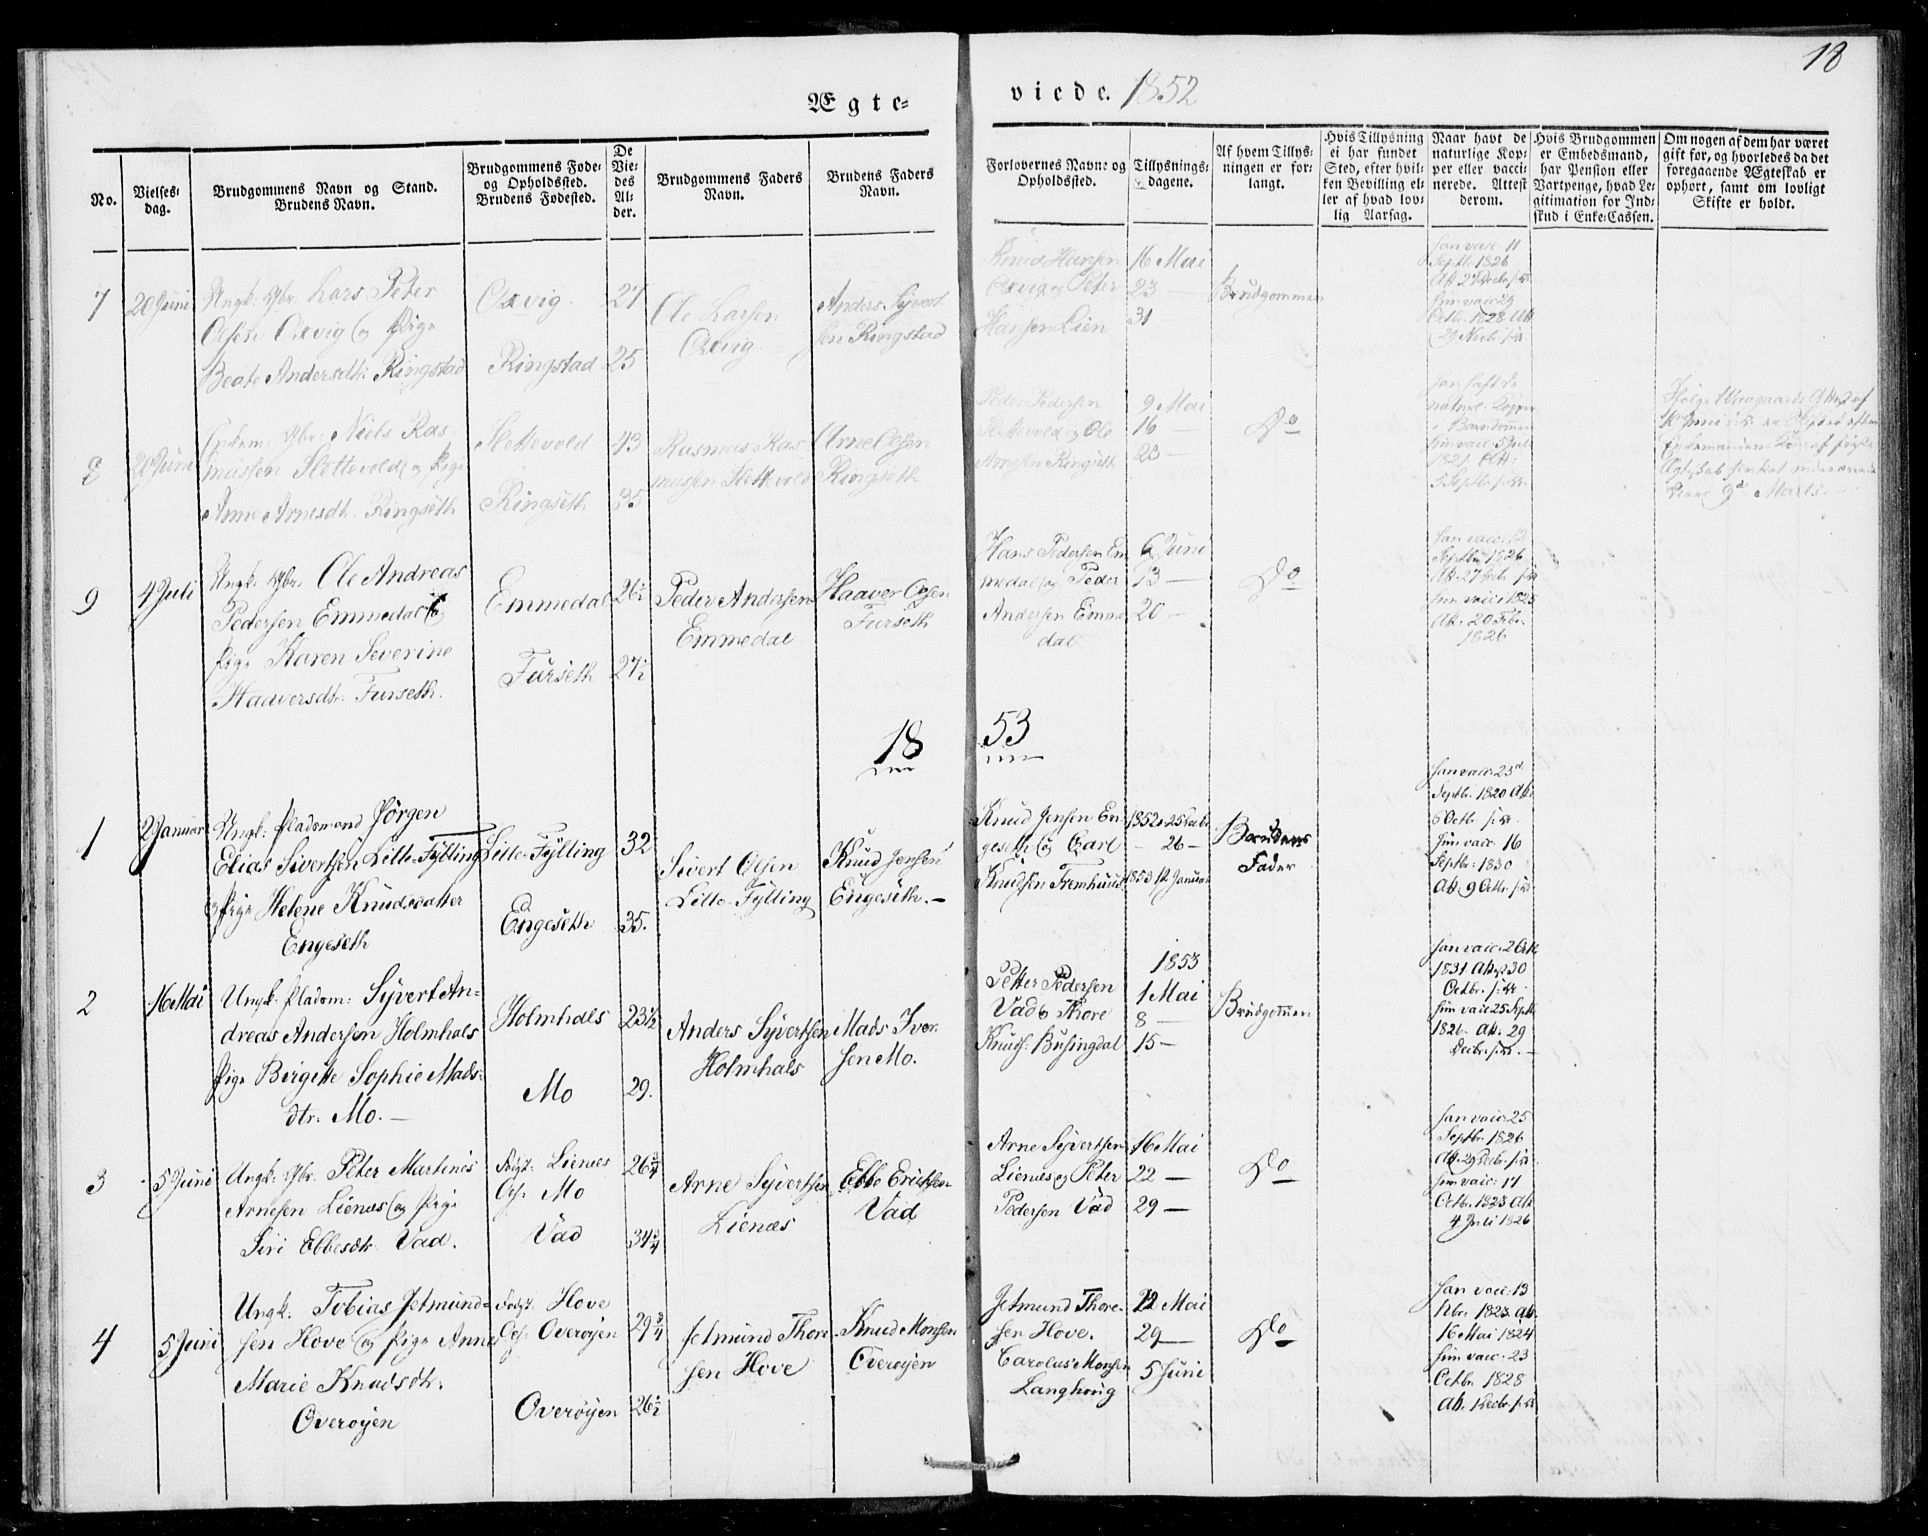 18
Ægte-
viede. 1852
No.
Vielses-
dag.
Brudgommens Navn og Stand.
Brudens Navn.
Brudgommens Føde-
og Opholdssted.
Brudens Fødested.
De
Vie-
des
Al-
der.
Brudgommens Faders
Navn.
Brudens Faders
Navn.
Forlovernes Navne og
Opholdssted.
Tillysnings-
dagene.
Af hvem Tillys-
ningen er for-
langt.
Hvis Tillysning
ei har fundet
Sted, efter hvil-
ken Bevilling el-
ler af hvad lov-
lig Aarsag.
Naar havt de
naturlige Kop-
per eller vacci-
nerede. Attest
derom.
Hvis Brudgommen
er Embedsmand,
har Pension eller
Vartpenge, hvad Le-
gitimation for Ind-
skud i Enke-Cassen.
Om nogen af dem har været
gift før, og hvorledes da det
foregaaende Ægteskab er
ophørt, samt om lovligt
Skifte er holdt.
7
20 Juni
Ungk: Gbr: Lars Peter
Olsen Oxvig og Pige
Beate Andersdtr: Ringstad
Oxvig
Ringstad
27
25
Ole Larsen
Oxvig
Anders Syvert
sen Ringstad
Knud Hansen
Oxvig og Peter
Hansen Lien
16 Mai
23 —
31
Brudgommen
han vacc: 11
Septb. 1826
Att 27 Decbr.
hun vacc 29
Octbr. 1828 Att
29 Novbr.
8
20 Juni
Enkem: Gbr: Niels Ras-
mussen Slettevold og Pige
Anne Arnesdtr. Ringseth
Slettevold
Ringseth
43
35
Rasmus Ras
mussen Slettevold
Arne Olsen
Ringseth
Peder Pedersen
Slettevold og Ole
Arnesen Ringseth
9 Mai
16 —
23 —
Do
han haft de
naturl: Kopper
i Barndomen
hun vacc. 5 Juli
1821. Att.
5 Septbr.
9d Marts. —
9
4 Juli
Ungk: Gbr: Ole Andreas
Pedersen Emmedal og
Pige Karen Severine
Haaversdtr. Furseth.
Emmedal
Furseth
26½
27½
Peder Andersen
Emmedal
Haaver Olsen
Furseth
Hans Pedersen Em
medal og Peder
Andersen Emme
dal
6 Juni
13 —
20 —
Do
han vacc. 12
Septbr. 1826
Att. 27 Decbr.
hun vacc. 1825
Att. 20 Febr.
1826
18 53
1
2 Januar
Ungk: Pladsmand Jørgen
Elias Sivertsen Litle-Fylling
og Pige Helene Knudsdatter
Engeseth
Litle-Fylling
Engeseth
32
35.
Sivert Olsen
Litle-Fylling
Knud Jensen
Engeseth. —
Knud Jensen En-
geseth og Carl
Knudsen Fremhuus
1852 25 Decbr
— 26 —
1853 12 Januar
Brudens
Fader
han vacc: 23d
Septbr. 1820 Att.
6 Octbr.
hun vacc. 16
Septbr. 1830
Att. 9 Octbr.
2
16 Mai
Ungk. Pladsm: Syvert An-
dreas Andersen Holmhals
Pige Birgitte Sophie Mads-
dtr: Mo. —
Holmhals
Mo
23½
29.
Anders Syvertsen
Holmhals
Mads Iver
sen Mo.
Petter Pedersen
Vad og Thore
Knuds: Busingdal
1853
1 Mai
8 —
15 —
Brudgommen
han vacc. 2 Octb
1831. Att. 30
Octbr.
hun vacc 25 Septb
1826. Att. 29
Decbr. —
3
5 Juni
Ungk: Gbr: Peter Martinus
Arnesen Lienæs og Pige
Siri Ebbesdtr. Vad.
Fødst: Lienæs
Oph: Mo
Vad
26¾
34¾
Arne Syvertsen
Lienæs
Ebbe Ericksen
Vad
Arne Syvertsen
Lienæs og Peter
Pedersen Vad
16 Mai
22 —
29 —
Do
han vacc. 25
Septbr. 1826
Att. 29 Decbr.
hun vacc: 17
Octbr. 1823 Att
4 Juli 1826
4
5 Juni
Ungk. Tobias Jetmund-
sen Hove og Pige Anne
Marie Knudsdtr.
Overøyen
Fødst. Hove
Oph. Overøyen
Overøyen
29¾
26½
Jetmund Thore
sen Hove
Knud Monsen
Overøyen
Jetmund Thore-
sen Hove.
Carolus Monsen
Langhoug
22 Mai
29 —
5 Juni
Do
han vacc. 13
Nbr. 1823 Att.
16 Mai 1824
hun vacc. 23
Octbr. 1828
Att. 1 Decbr.